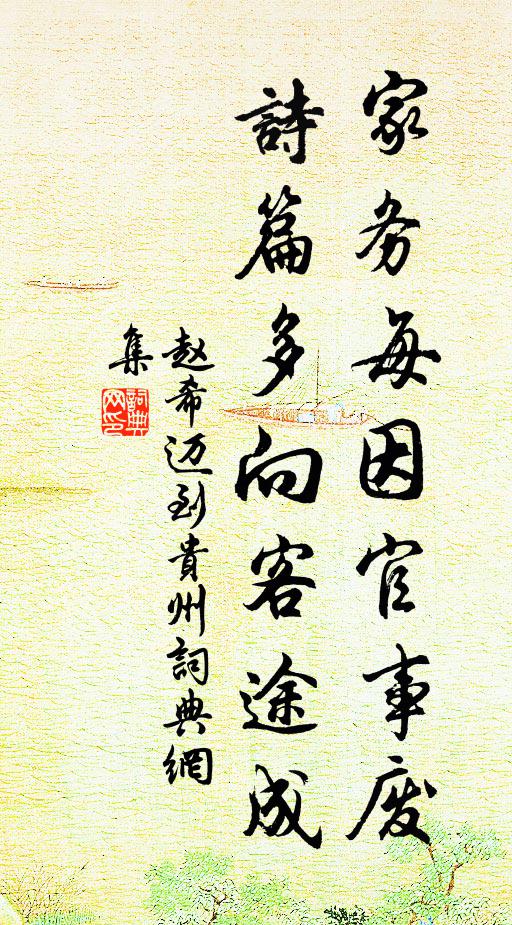 家务每因官事废
詩篇多向客途成
赵希迈到貴州詞典網
集
詞典
网印